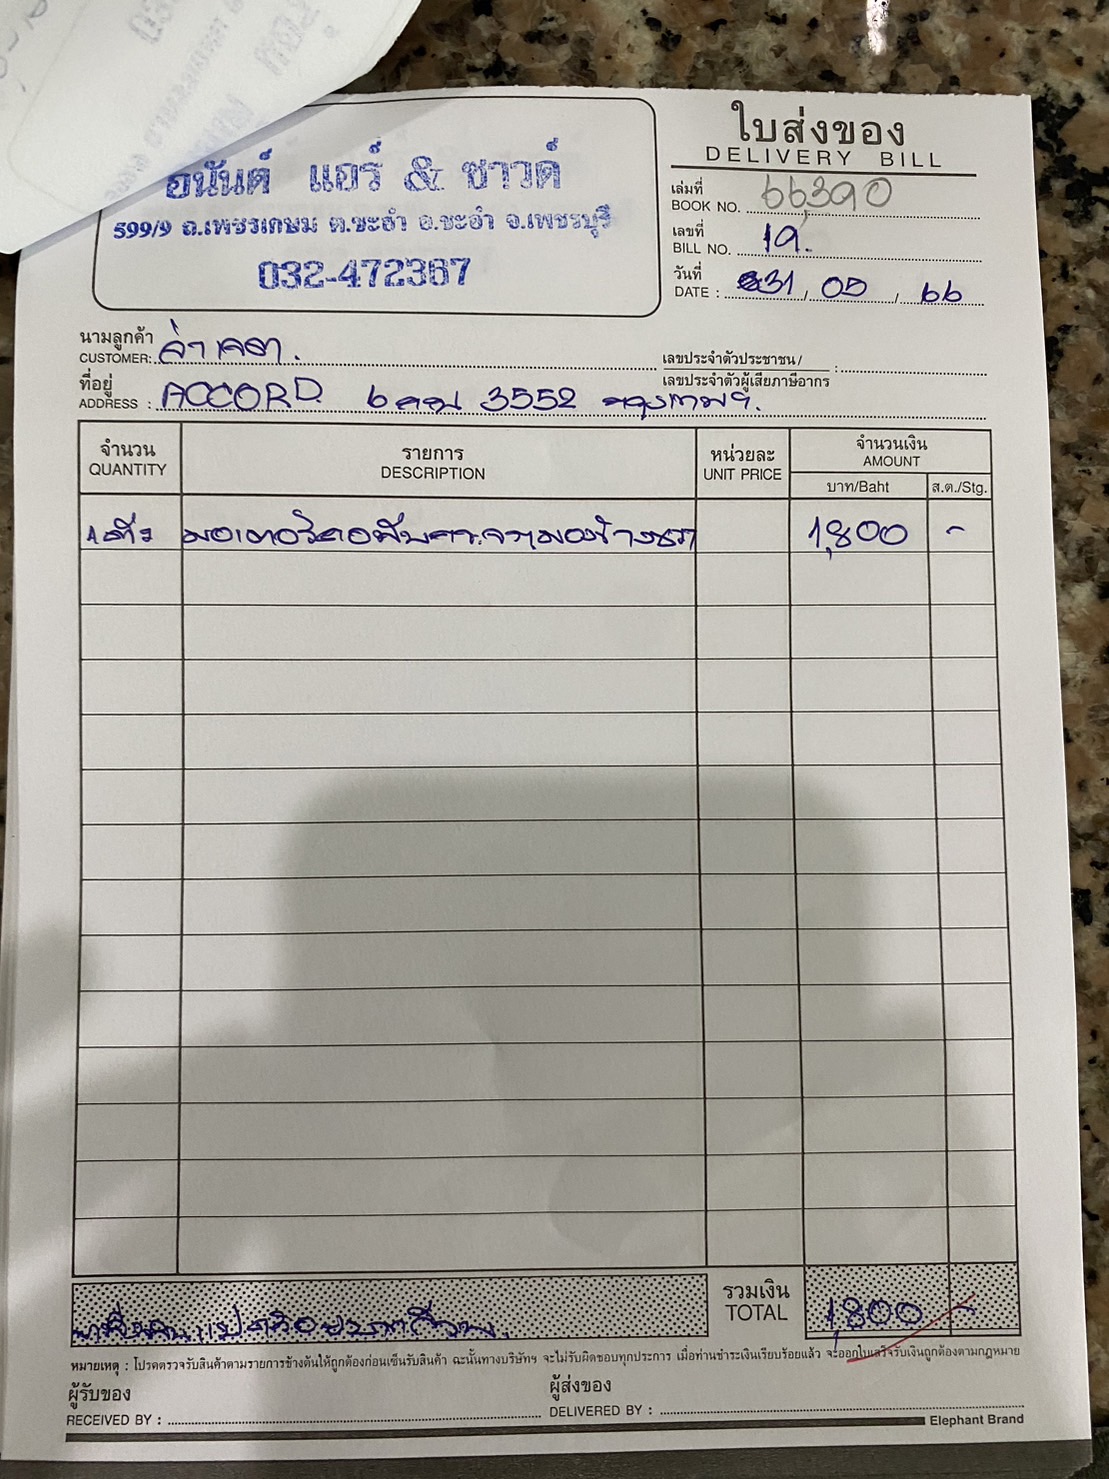 ใบส่งของ
DELIVERY BILL
อนันต์ แอร์ & ซาวด์
599/9 ถ.เพชรเกษม ต.ชะอำ อ.ชะอำ จ.เพชรบุรี
032-472367
เล่มที่
BOOK NO. 66,390
เลขที่
BILL NO. 19.
วันที่
DATE : 31, 05, 66
นามลูกค้า
CUSTOMER:
เลขประจำตัวประชาชน/
เลขประจำตัวผู้เสียภาษีอากร :
ที่อยู่
ADDRESS : ACCORD 3552 กรุงเทพฯ.
จำนวน
QUANTITY
รายการ
DESCRIPTION
หน่วยละ
UNIT PRICE
จำนวนเงิน
AMOUNT
บาท/Baht
ส.ต./Stg.
มอเตอร์ 1,800 -
รวมเงิน
TOTAL 1,800 -
หมายเหตุ : โปรดตรวจรับสินค้าตามรายการข้างต้นให้ถูกต้องก่อนเซ็นรับสินค้า ฉะนั้นทางบริษัทฯ จะไม่รับผิดชอบทุกประการ เมื่อท่านชำระเงินเรียบร้อยแล้ว จะออกใบเสร็จรับเงินถูกต้องตามกฎหมาย
ผู้รับของ
RECEIVED BY :
ผู้ส่งของ
DELIVERED BY :
Elephant Brand